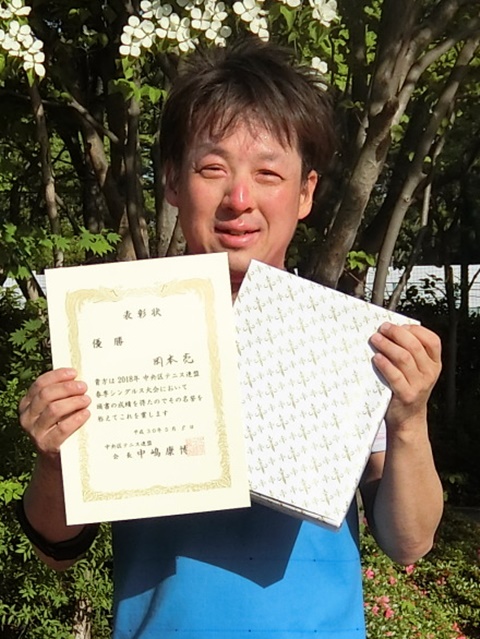 表彰状
優勝
岡本亮
貴方は2018年中央区テニス連盟
春季シングルス大会において
頭書の成績を得たのでその名誉を
称えてこれを賞します
平成30年5月7日
中央区テニス連盟
会長 中嶋康博